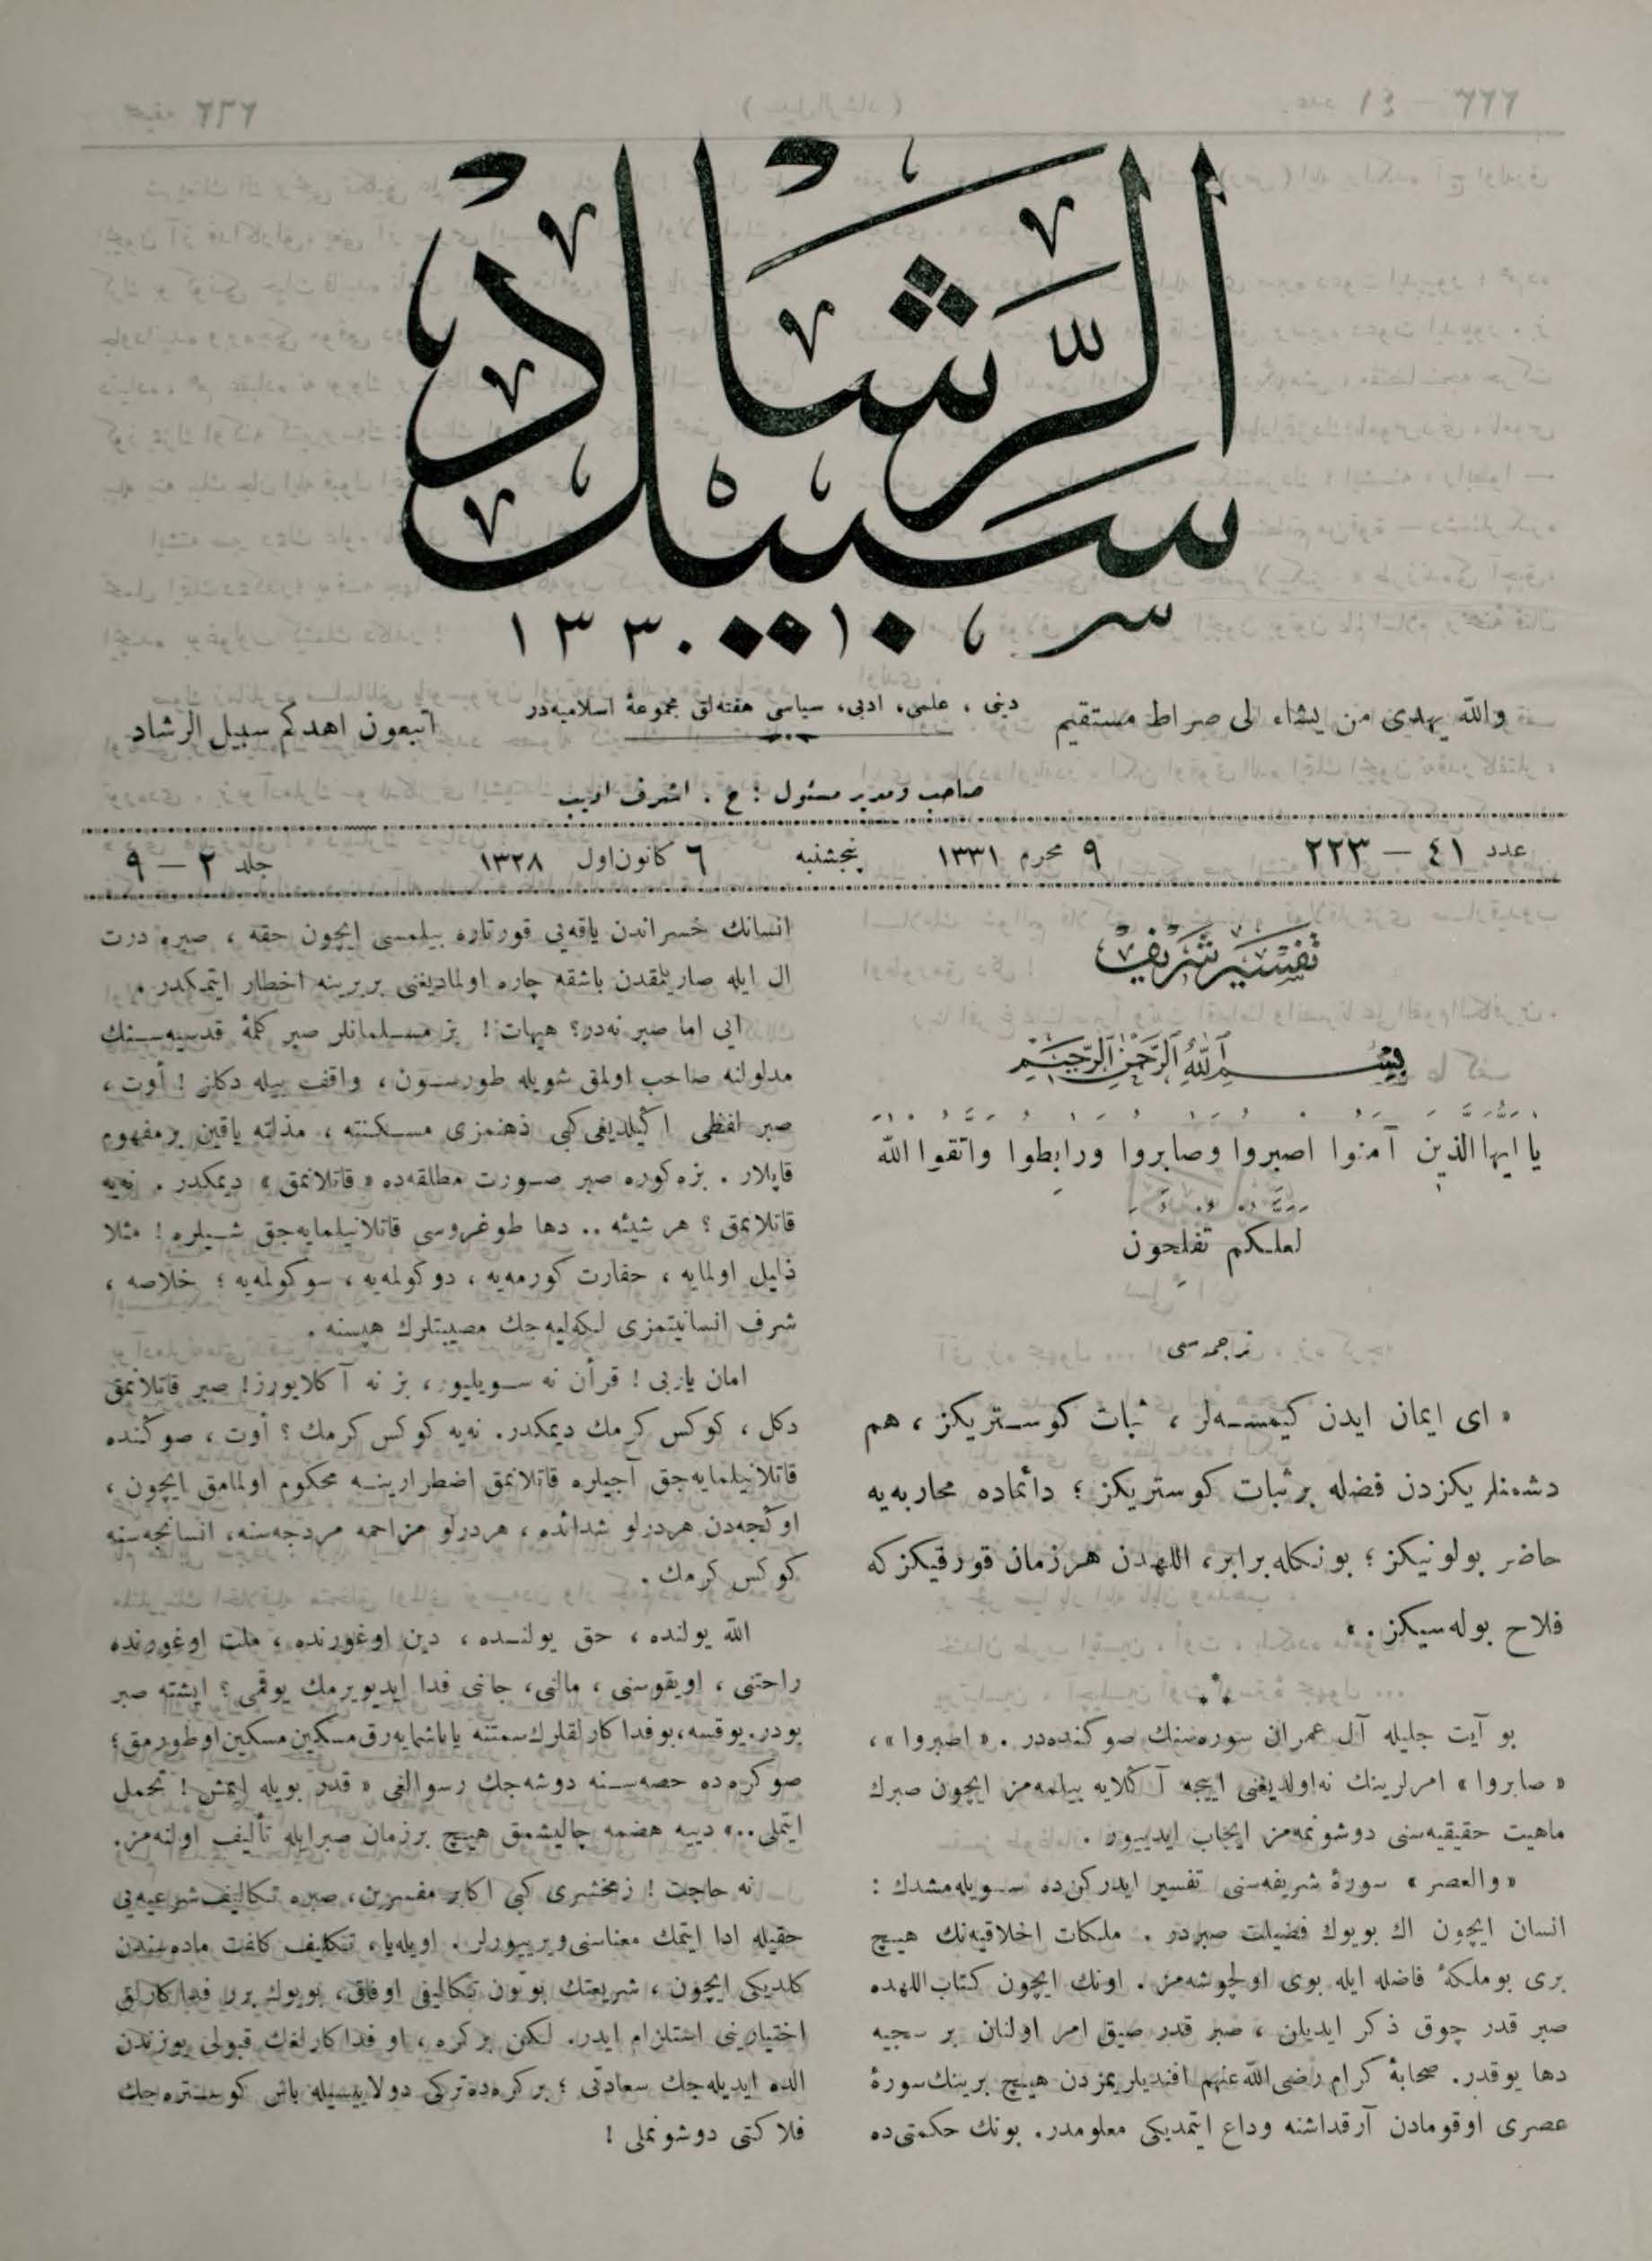 سبيل الرشاد
١٣٣٠
والله يهدى من يشاء الى صراط مستقيم
دينى ، علمى، ادبى، سياسى هفته‌لق مجموعۀ اسلاميه‌در
اتبعون اهدكم سبيل الرشاد
صاحب ومدير مسئول : ح . اشرف اديب
عدد ٤١ — ٢٢٣
٩ محرم ١٣٣١
پنجشنبه
٦ كانون‌اول ١٣٢٨
جلد ٢ — ٩
تفسير شريف
بسم الله الرحمن الرحيم
يا ايها الذين آمنوا اصبروا وصابروا ورابطوا واتقوا الله
لعلـكم تفلحون
ترجمه‌سى
« اى ايمان ايدن كيمسـه‌لر ، ثبات كوسـتريكز ، هم
دشمنلريكزدن فضله بر ثبات كوستريكز ؛ دائماده محاربه‌يه
حاضر بولونيكز ؛ بونكله برابر، اللهدن هرزمان قورقيكزكه
فلاح بوله‌سيكز . »
بو آيت جليله آل عمران سوره‌سنك صوكنده‌در . « اصبروا »،
« صابروا » امرلرينك نه‌اولديغنى اييجه آكلايه بيلمه‌مز ايچون صبرك
ماهيت حقيقيه‌سنى دوشونمه‌مز ايجاب ايدييور .
« والعصر » سورۀ شريفه‌سنى تفسير ايدركن‌ده سـويله‌مشدك :
انسان ايچون اك بويوك فضيلت صبردر . ملـكات اخلاقيه‌نك هيـچ
برى بوملكۀ فاضله ايله بوى اولچوشه‌مز . اونك ايچون كتاب‌اللهده
صبر قدر چوق ذكر ايديلن ، صبر قدر صيق امر اولنان بر سجيه
دها يوقدر. صحابۀ كرام رضى‌الله‌عنهم افنديلريمزدن هيـچ برينك سورۀ
عصرى اوقومادن آرقداشنه وداع ايتمديكى معلومدر. بونك حكمتى‌ده
انسانك خسراندن ياقه‌يى قورتاره بيلمسى ايچون حقه ، صبره درت
ال ايله صاريلمقدن باشقه چاره اولماديغنى بربرينه اخطار ايتمكدر .
ايى اما صبر نه‌در؟ هيهات ! بز مسـلمانلر صبر كلمۀ قدسيه‌سـنك
مدلولنه صاحب اولمق شويله طورسـون، واقف بيله دكلز ! أوت ،
صبر لفظى اكيلديغى كبى ذهنمزى مسـكنته ، مذلته ياقين بر مفهوم
قاپلار . بزه كوره صبر صـورت مطلقه‌ده « قاتلانمق » ديمكدر . نه‌يه
قاتلانمق ؟ هر شيئه .. دها طوغروسى قاتلانيلمايه‌جق شـيلره ! مثلا
ذليل اولمايه ، حقارت كورمه‌يه ، دوكولمه‌يه ، سوكولمه‌يه ؛ خلاصه ،
شرف انسانيتمزى لـكه‌ليه‌جك مصيبتلرك هپسنه .
امان ياربى ! قرأن نه سـويليور ، بز نه آكلايورز! صبر قاتلانمق
دكل ، كوكس كرمك ديمكدر. نه‌يه كوكس كرمك ؟ أوت ، صوكنده
قاتلانيلمايه‌جق آجيلره قاتلانمق اضطرارينـه محكوم اولمامق ايچون ،
اوكجه‌دن هردرلو شدائده ، هردرلو مزاحمه مردجه‌سنه، انسانجه‌سنه
كوكس كرمك .
الله يولنده ، حق يولنـده ، دين اوغورنده ، ملت اوغورنده
راحتنى ، اويقوسنى ، مالنى، جاننى فدا ايديويرمك يوقمى ؟ ايشته صبر
بودر. يوقسه، بو فداكارلقلرك سمتنه ياناشمايه‌رق مسكين مسكين اوطورمق ؛
صوكره‌ده حصه‌سـنه دوشه‌جك رسوالغى « قدر بويله ايمش ! تحمل
ايتملى .. » دييه هضمه چاليشمق هيـچ برزمان صبرايله تأليف اولنه‌مز.
نه حاجت ! زمخشرى كبى اكابر مفسرين، صبره تـكاليف شرعيه‌يى
حقيله ادا ايتمك معناسنى ويرييورلر . اويله‌يا، تـكليف كلفت ماده‌سندن
كلديكى ايچون ، شريعتك بوتون تـكاليفى اوفاق، بويوك برر فداكارلق
اختيارينى استلزام ايدر. لـكن بر كره ، او فداكارلغك قبولى يوزندن
الده ايديله‌جك سعادتى ؛ بر كره‌ده تركى دولاييسيله باش كوسـتره‌جك
فلاكتى دوشونملى !